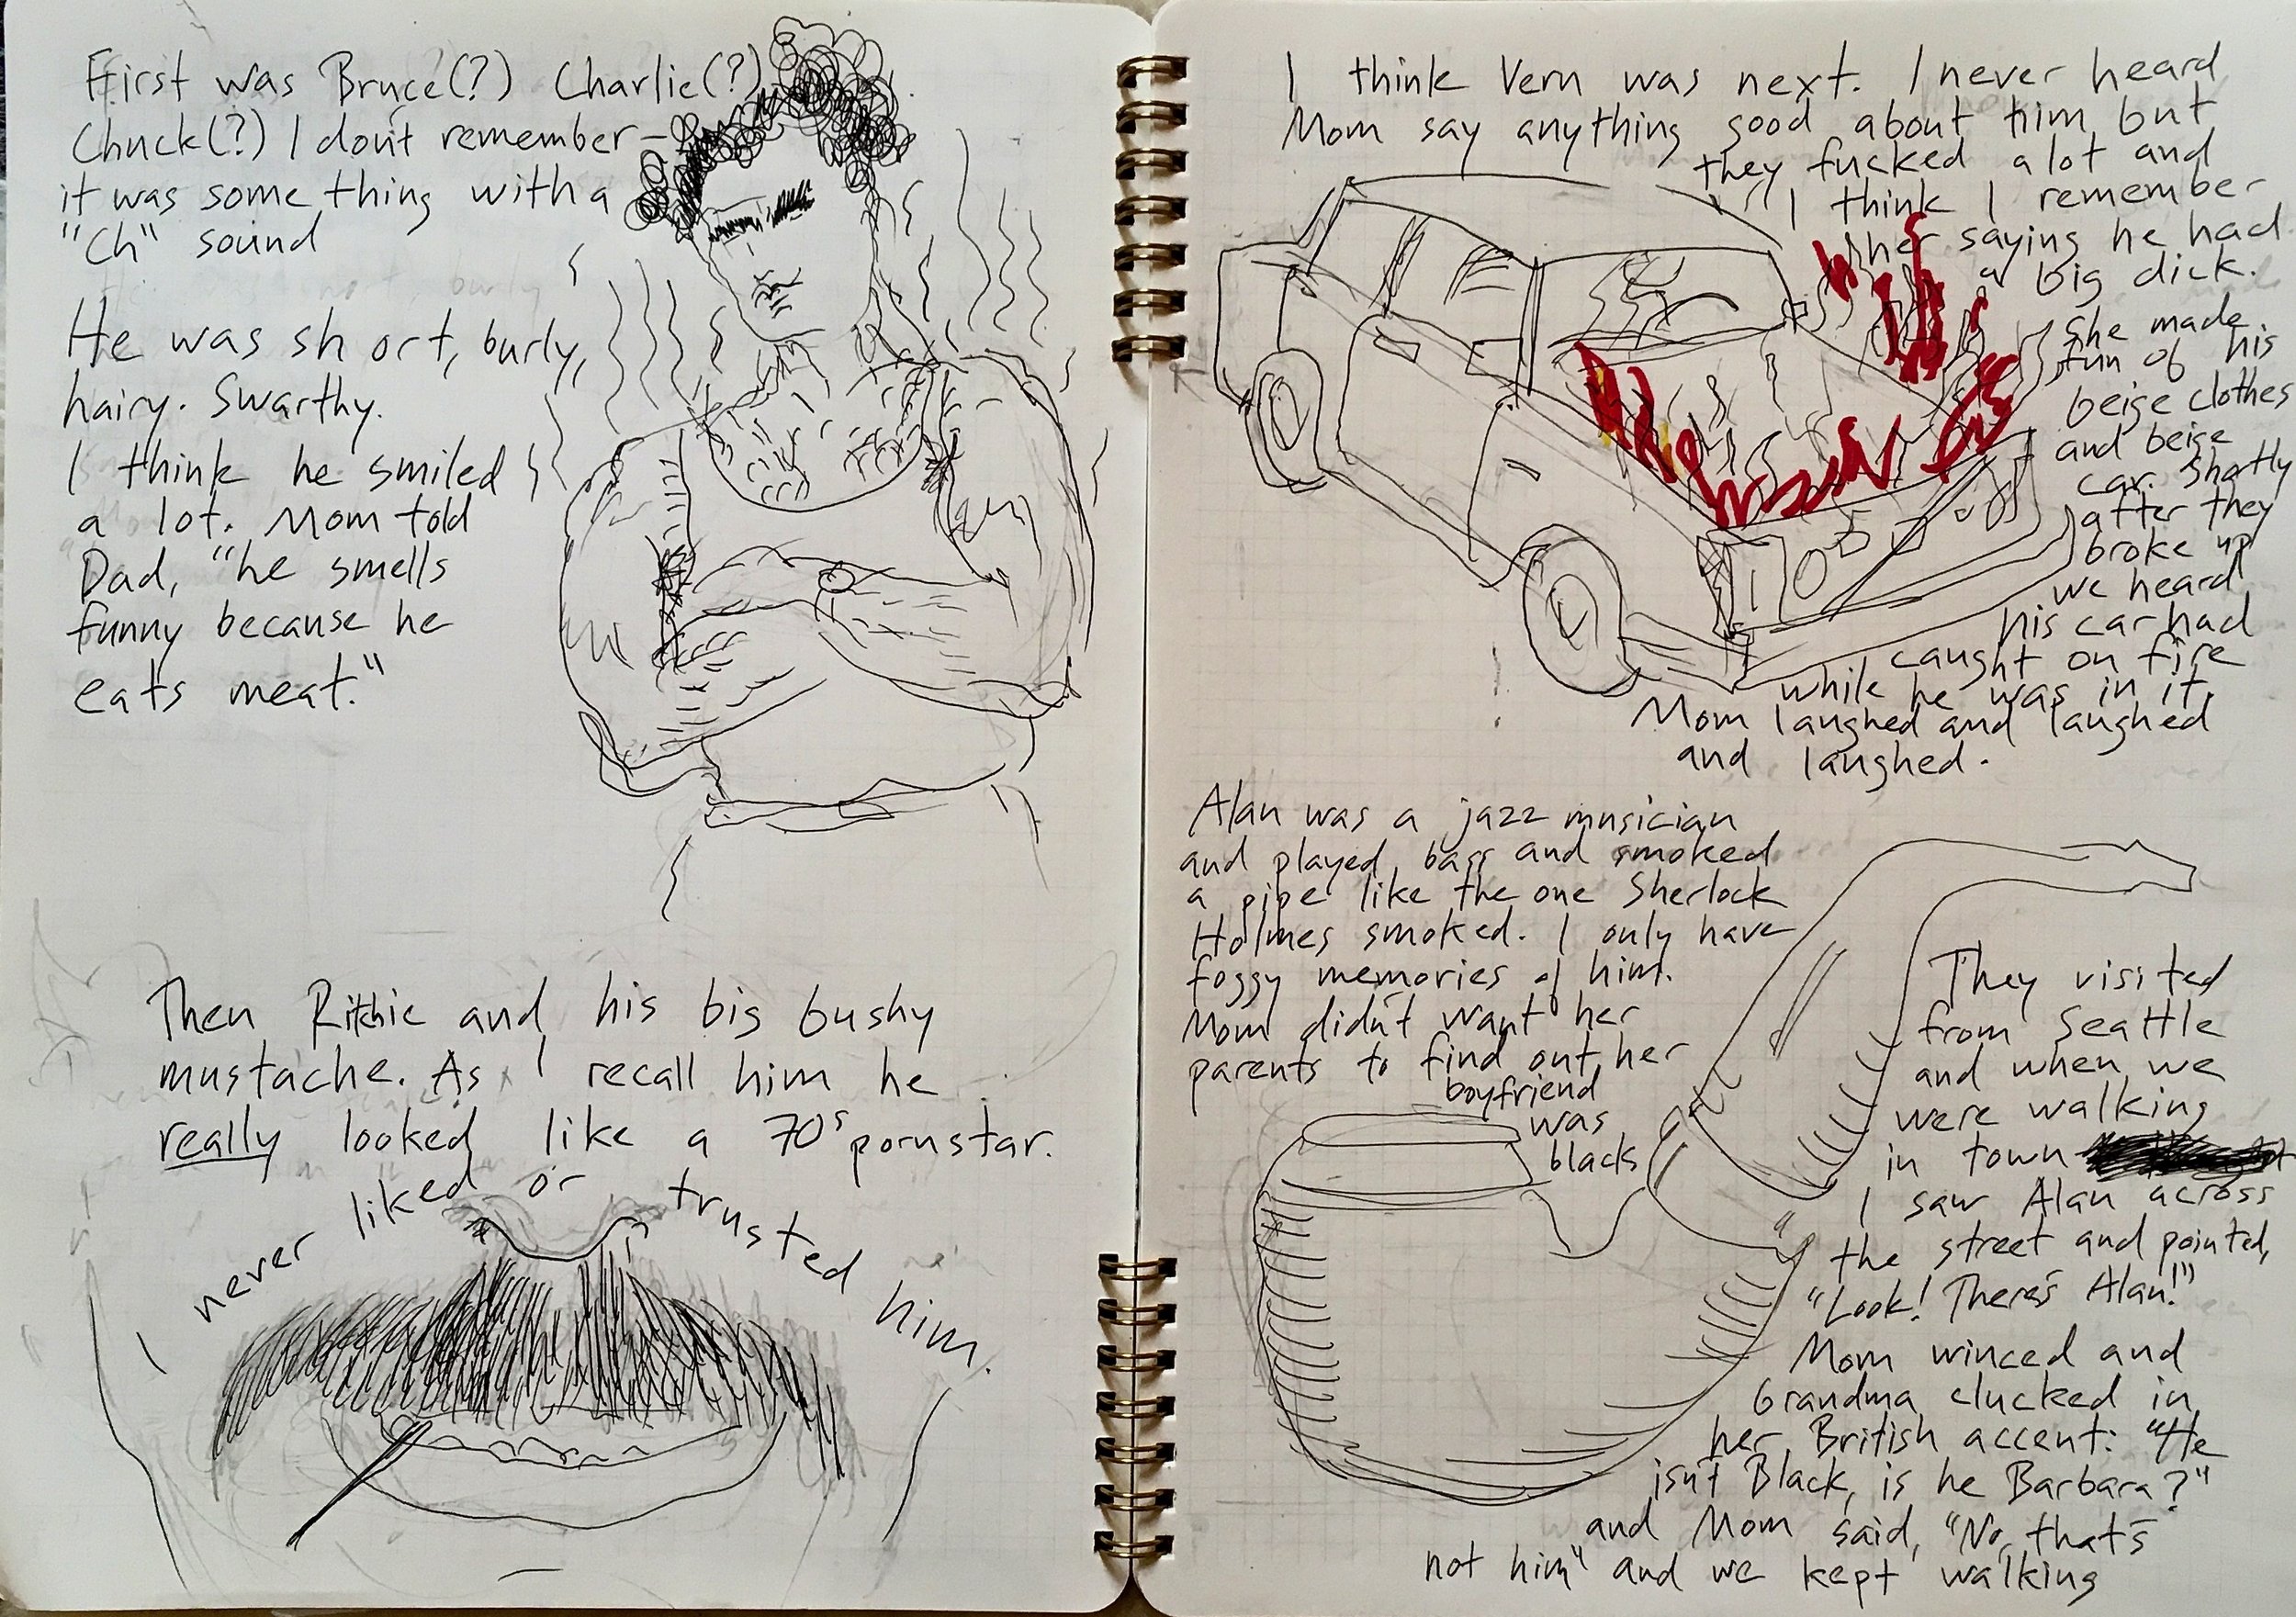 First was Bruce(?) Charlie(?)
Chuck(?) I don't remember-
it was some thing with a
"Ch" sound
He was short, burly,
hairy. Swarthy.
I think he smiled
a lot. Mom told
Dad, "he smells
funny because he
eats meat."
Then Ritchie and his big bushy
mustache. As I recall him he
really looked like a 70s pornstar.
I never liked or trusted him.
I think Vern was next. I never heard
Mom say anything good about him but
they fucked a lot and
I think I remember
her saying he had
a big dick.
She made
fun of his
beige clothes
and beige
car. Shortly
after they
broke up
we heard
his car had
caught on fire
while he was in it.
Mom laughed and laughed
and laughed.
Alan was a jazz musician
and played bass and smoked
a pipe like the one Sherlock
Holmes smoked. I only have
foggy memories of him.
Mom didn't want her
parents to find out her
boyfriend
was
black
They visited
from Seattle
and when we
were walking
in town
I saw Alan across
the street and pointed,
"Look! There's Alan!"
Mom winced and
Grandma clucked in
her British accent: "He
isn't Black, is he Barbara?"
and Mom said, "No, that's
not him" and we kept walking